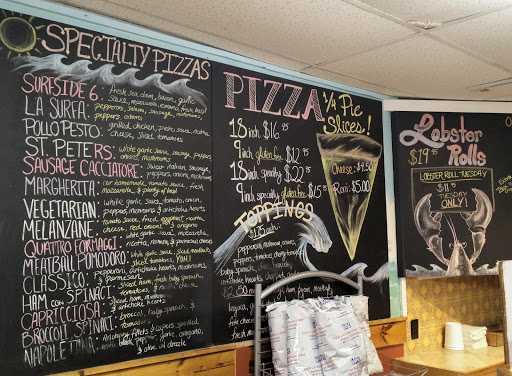 SPECIALTY PIZZAS
SURFSIDE 6: fresh sea clam, bacon, garlic
sauce, mozzarella, romano, fresh basil
LA SURFA: pepperoni, salami, sausage, mushrooms,
peppers, onions
POLLO PESTO: grilled chicken, pesto sauce, ricotta
cheese, sliced tomatoes
ST. PETERS: white garlic sauce, sausage, peppers,
onions, mushrooms
SAUSAGE CACCIATORE: sweet italian sausage,
peppers, onion, mushrooms
MARGHERITA: our homemade tomato sauce, fresh
mozzarella, & plenty of basil
VEGETARIAN: white garlic sauce, tomato, onion,
peppers, mushrooms & artichoke hearts
MELANZANE: tomato sauce, fried eggplant, ricotta
cheese, red onions & oregano
QUATTRO FORMAGGI: white garlic sauce, mozzarella,
ricotta, romano & parmesan cheeses
MEATBALL POMODORO: white garlic sauce, sliced meatballs,
sliced tomatoes, YUM!
CLASSICO: pepperoni, artichoke hearts, mushrooms,
& parmesan
HAM con SPINACI: sliced ham, fresh baby spinach,
tomatoes &
CAPRICCIOSA: sliced ham, mushroom
& artichoke hearts
BROCCOLI SPINACI: broccoli, baby spinach, &
tomato
NAPOLETINA: Anchovy fillets & capers sprinkled
with black pepper, garlic, oregano,
& olive oil drizzle
PIZZA
18 inch $16.95
9 inch gluten free $12.95
18 inch specialty $22.95
9 inch specialty gluten free $15.95
TOPPINGS
$1.75 each
pepperoni, mushroom, onion,
peppers, tomatoes,
baby spinach,
artichoke hearts
$2.50
ham,
fresh
1/4 Pie
Slices!
Cheese: $4.50
Roni: $5.00
Lobster
Rolls
$19.95
LOBSTER ROLL TUESDAY
$11.95
TUESDAY
ONLY!